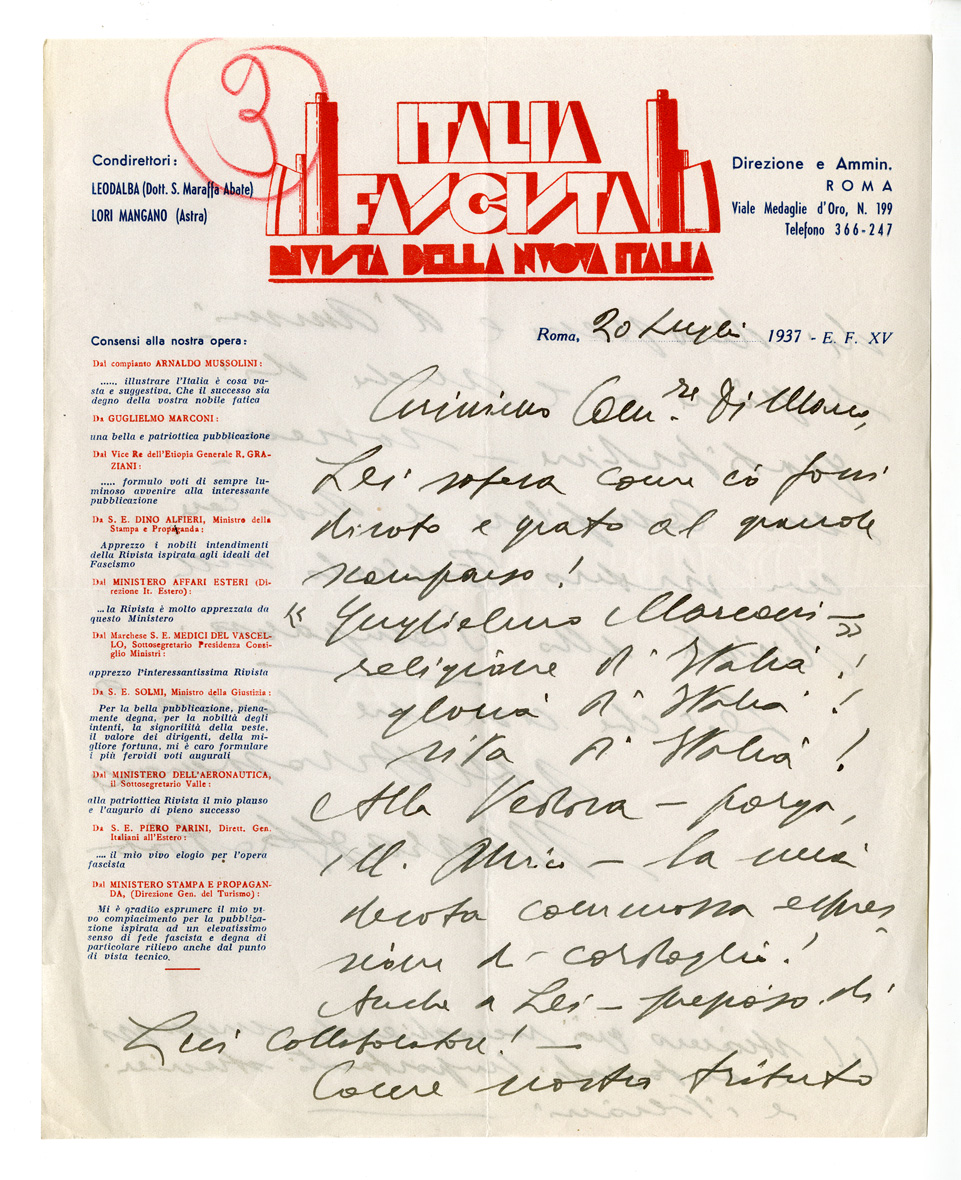 3
ITALIA
FASCISTA
RIVISTA DELLA NUOVA ITALIA
Condirettori:
LEODALBA (Dott. S. Maraffa Abate)
LORI MANGANO (Astra)
Direzione e Ammin.
ROMA
Viale Medaglie d'Oro, N. 199
Telefono 366-247
Consensi alla nostra opera:
Dal compianto ARNALDO MUSSOLINI:
...... illustrare l'Italia è cosa va-
sta e suggestiva. Che il successo sia
degno della vostra nobile fatica
Da GUGLIELMO MARCONI:
una bella e patriottica pubblicazione
Dal Vice Re dell'Etiopia Generale R. GRA-
ZIANI:
..... formulo voti di sempre lu-
minoso avvenire alla interessante
pubblicazione
Da S. E. DINO ALFIERI, Ministro della
Stampa e Propaganda:
Apprezzo i nobili intendimenti
della Rivista ispirata agli ideali del
Fascismo
Dal MINISTERO AFFARI ESTERI (Di-
rezione It. Estero):
...la Rivista è molto apprezzata da
questo Ministero
Dal Marchese S. E. MEDICI DEL VASCEL-
LO, Sottosegretario Presidenza Consi-
glio Ministri:
apprezzo l'interessantissima Rivista
Da S. E. SOLMI, Ministro della Giustizia:
Per la bella pubblicazione, piena-
mente degna, per la nobiltà degli
intenti, la signorilità della veste,
il valore dei dirigenti, della mi-
gliore fortuna, mi è caro formulare
i più fervidi voti augurali
Dal MINISTERO DELL'AERONAUTICA,
il Sottosegretario Valle:
alla patriottica Rivista il mio plauso
e l'augurio di pieno successo
Da S. E. PIERO PARINI, Dirett. Gen.
Italiani all'Estero:
.... il mio vivo elogio per l'opera
fascista
Dal MINISTERO STAMPA E PROPAGAN-
DA, (Direzione Gen. del Turismo):
Mi è gradito esprimere il mio vi-
vo compiacimento per la pubblica-
zione ispirata ad un elevatissimo
senso di fede fascista e degna di
particolare rilievo anche dal punto
di vista tecnico.
Roma, 20 Luglio 1937 - E. F. XV
Carissimo Comm.re Di Marco,
Lei sapeva come io fossi
devoto e grato al grande
scomparso!
« Guglielmo Marconi —
religione d'Italia! »
gloria d'Italia!
vita d'Italia!
Alla Vedova — porga,
— la mia
devota commossa espres
sione di cordoglio!
Anche a Lei — prezioso di
Lui collaboratore! —
Come nostro tributo